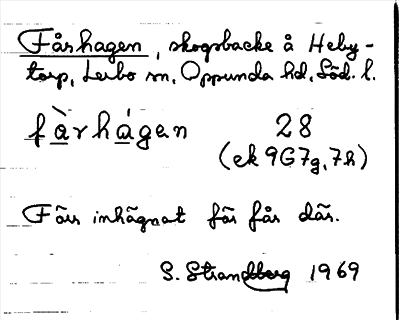 Fårhagen, skogsbacke å Heby-
torp, Lerbo sn, Oppunda hd, Söd. l.
fàrhágen 28
(ek 9G7g,7h)
Förr inhägnat för får där.
S. Strandberg 1969